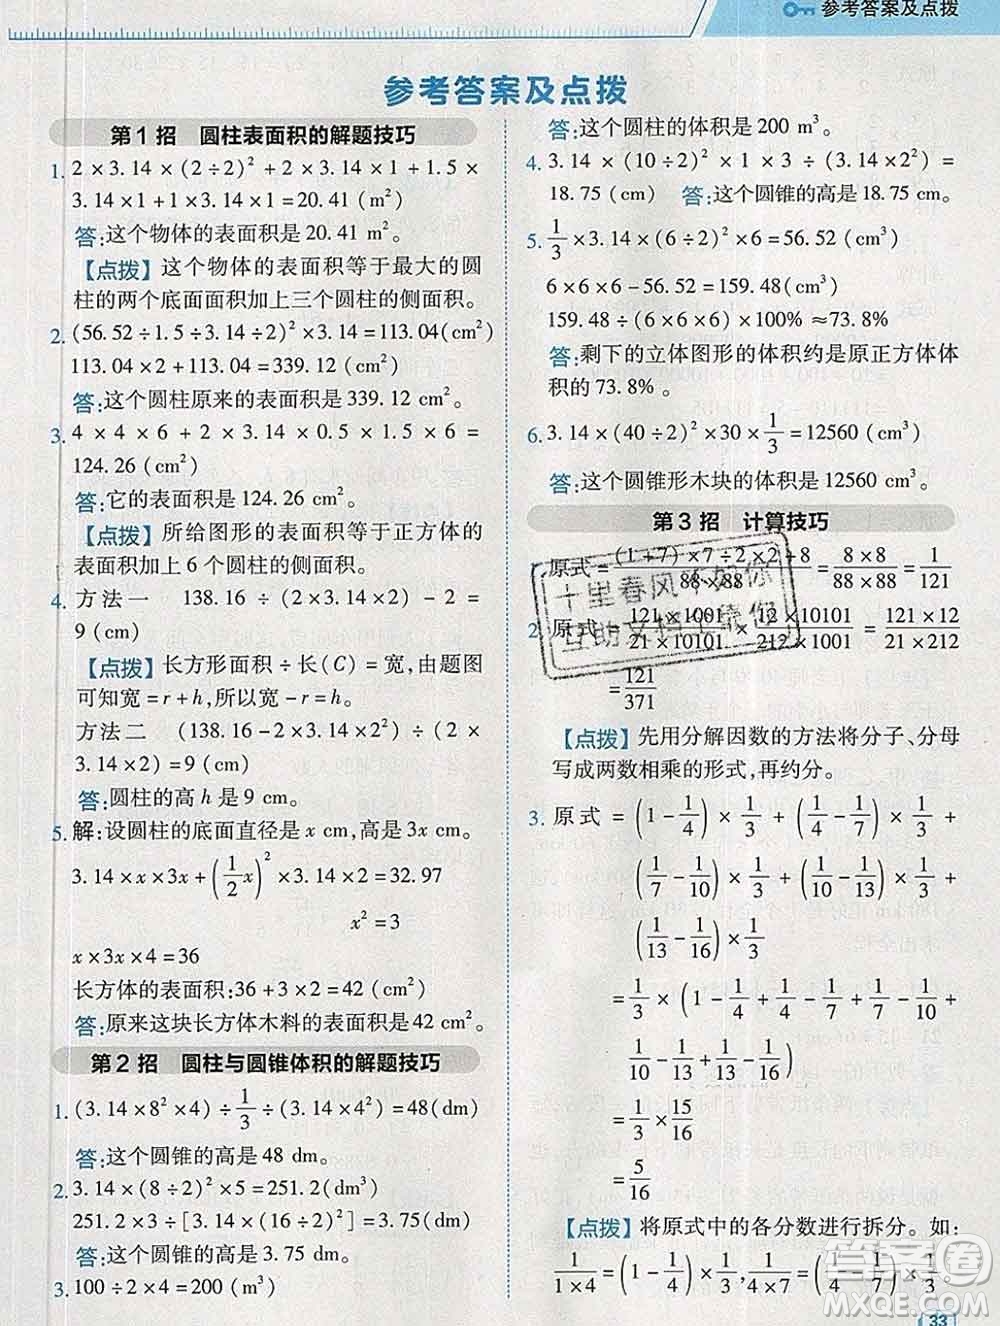 参考答案及点拨
参考答案及点拨
第1招 圆柱表面积的解题技巧
1. 2×3.14×(2÷2)²+2×3.14×1+1.5×
3.14×1+1×3.14×1=20.41(m²)
答:这个物体的表面积是20.41 m²。
【点拨】这个物体的表面积等于最大的圆
柱的两个底面面积加上三个圆柱的侧面积。
2. (56.52÷1.5÷3.14÷2)²×3.14=113.04(cm²)
113.04×2+113.04=339.12(cm²)
答:这个圆柱原来的表面积是339.12 cm²。
3. 4×4×6+2×3.14×0.5×1.5×6=
124.26(cm²)
答:它的表面积是124.26 cm²。
【点拨】所给图形的表面积等于正方体的
表面积加上6个圆柱的侧面积。
4. 方法一 138.16÷(2×3.14×2)-2=9(cm)
【点拨】长方形面积÷长(C)=宽,由题图
可知宽=r+h,所以宽-r=h。
方法二 (138.16-2×3.14×2²)÷(2×
3.14×2)=9(cm)
答:圆柱的高h是9 cm。
5. 解:设圆柱的底面直径是x cm,高是3x cm。
3.14×x×3x+(1/2 x)²×3.14×2=32.97
x²=3
x×3x×4=36
长方体的表面积:36+3×2=42(cm²)
答:原来这块长方体木料的表面积是42 cm²。
第2招 圆柱与圆锥体积的解题技巧
1. (3.14×8²×4)÷1/3÷(3.14×4²)=48(dm)
答:这个圆锥的高是48 dm。
2. 3.14×(8÷2)²×5=251.2(dm³)
251.2×3÷[3.14×(16÷2)²]=3.75(dm)
答:这个圆锥的高是3.75 dm。
3. 100÷2×4=200(m³)
答:这个圆柱的体积是200 m³。
4. 3.14×(10÷2)²×1×3÷(3.14×2²)=
18.75(cm) 答:这个圆锥的高是18.75 cm。
5. 1/3×3.14×(6÷2)²×6=56.52(cm³)
6×6×6-56.52=159.48(cm³)
159.48÷(6×6×6)×100%≈73.8%
答:剩下的立体图形的体积约是原正方体体
积的73.8%。
6. 3.14×(40÷2)²×30×1/3=12560(cm³)
答:这个圆锥形木块的体积是12560 cm³。
第3招 计算技巧
1. 原式=(1+7)×7÷2×2+8/88×88=8×8/88×88=1/121
2. 原式=121×1001/21×10101×12×10101/212×1001=121×12/21×212
=121/371
【点拨】先用分解因数的方法将分子、分母
写成两数相乘的形式,再约分。
3. 原式=(1-1/4)×1/3+(1/4-1/7)×1/3+
(1/7-1/10)×1/3+(1/10-1/13)×1/3+
(1/13-1/16)×1/3
=1/3×(1-1/4+1/4-1/7+1/7-1/10+
1/10-1/13+1/13-1/16)
=1/3×15/16
=5/16
【点拨】将原式中的各分数进行拆分。如:
1/1×4=(1-1/4)×1/3,1/4×7=(1/4-1/7)×1/3
十里春风不如你
互助文档
答案圈
MXQE.COM
33